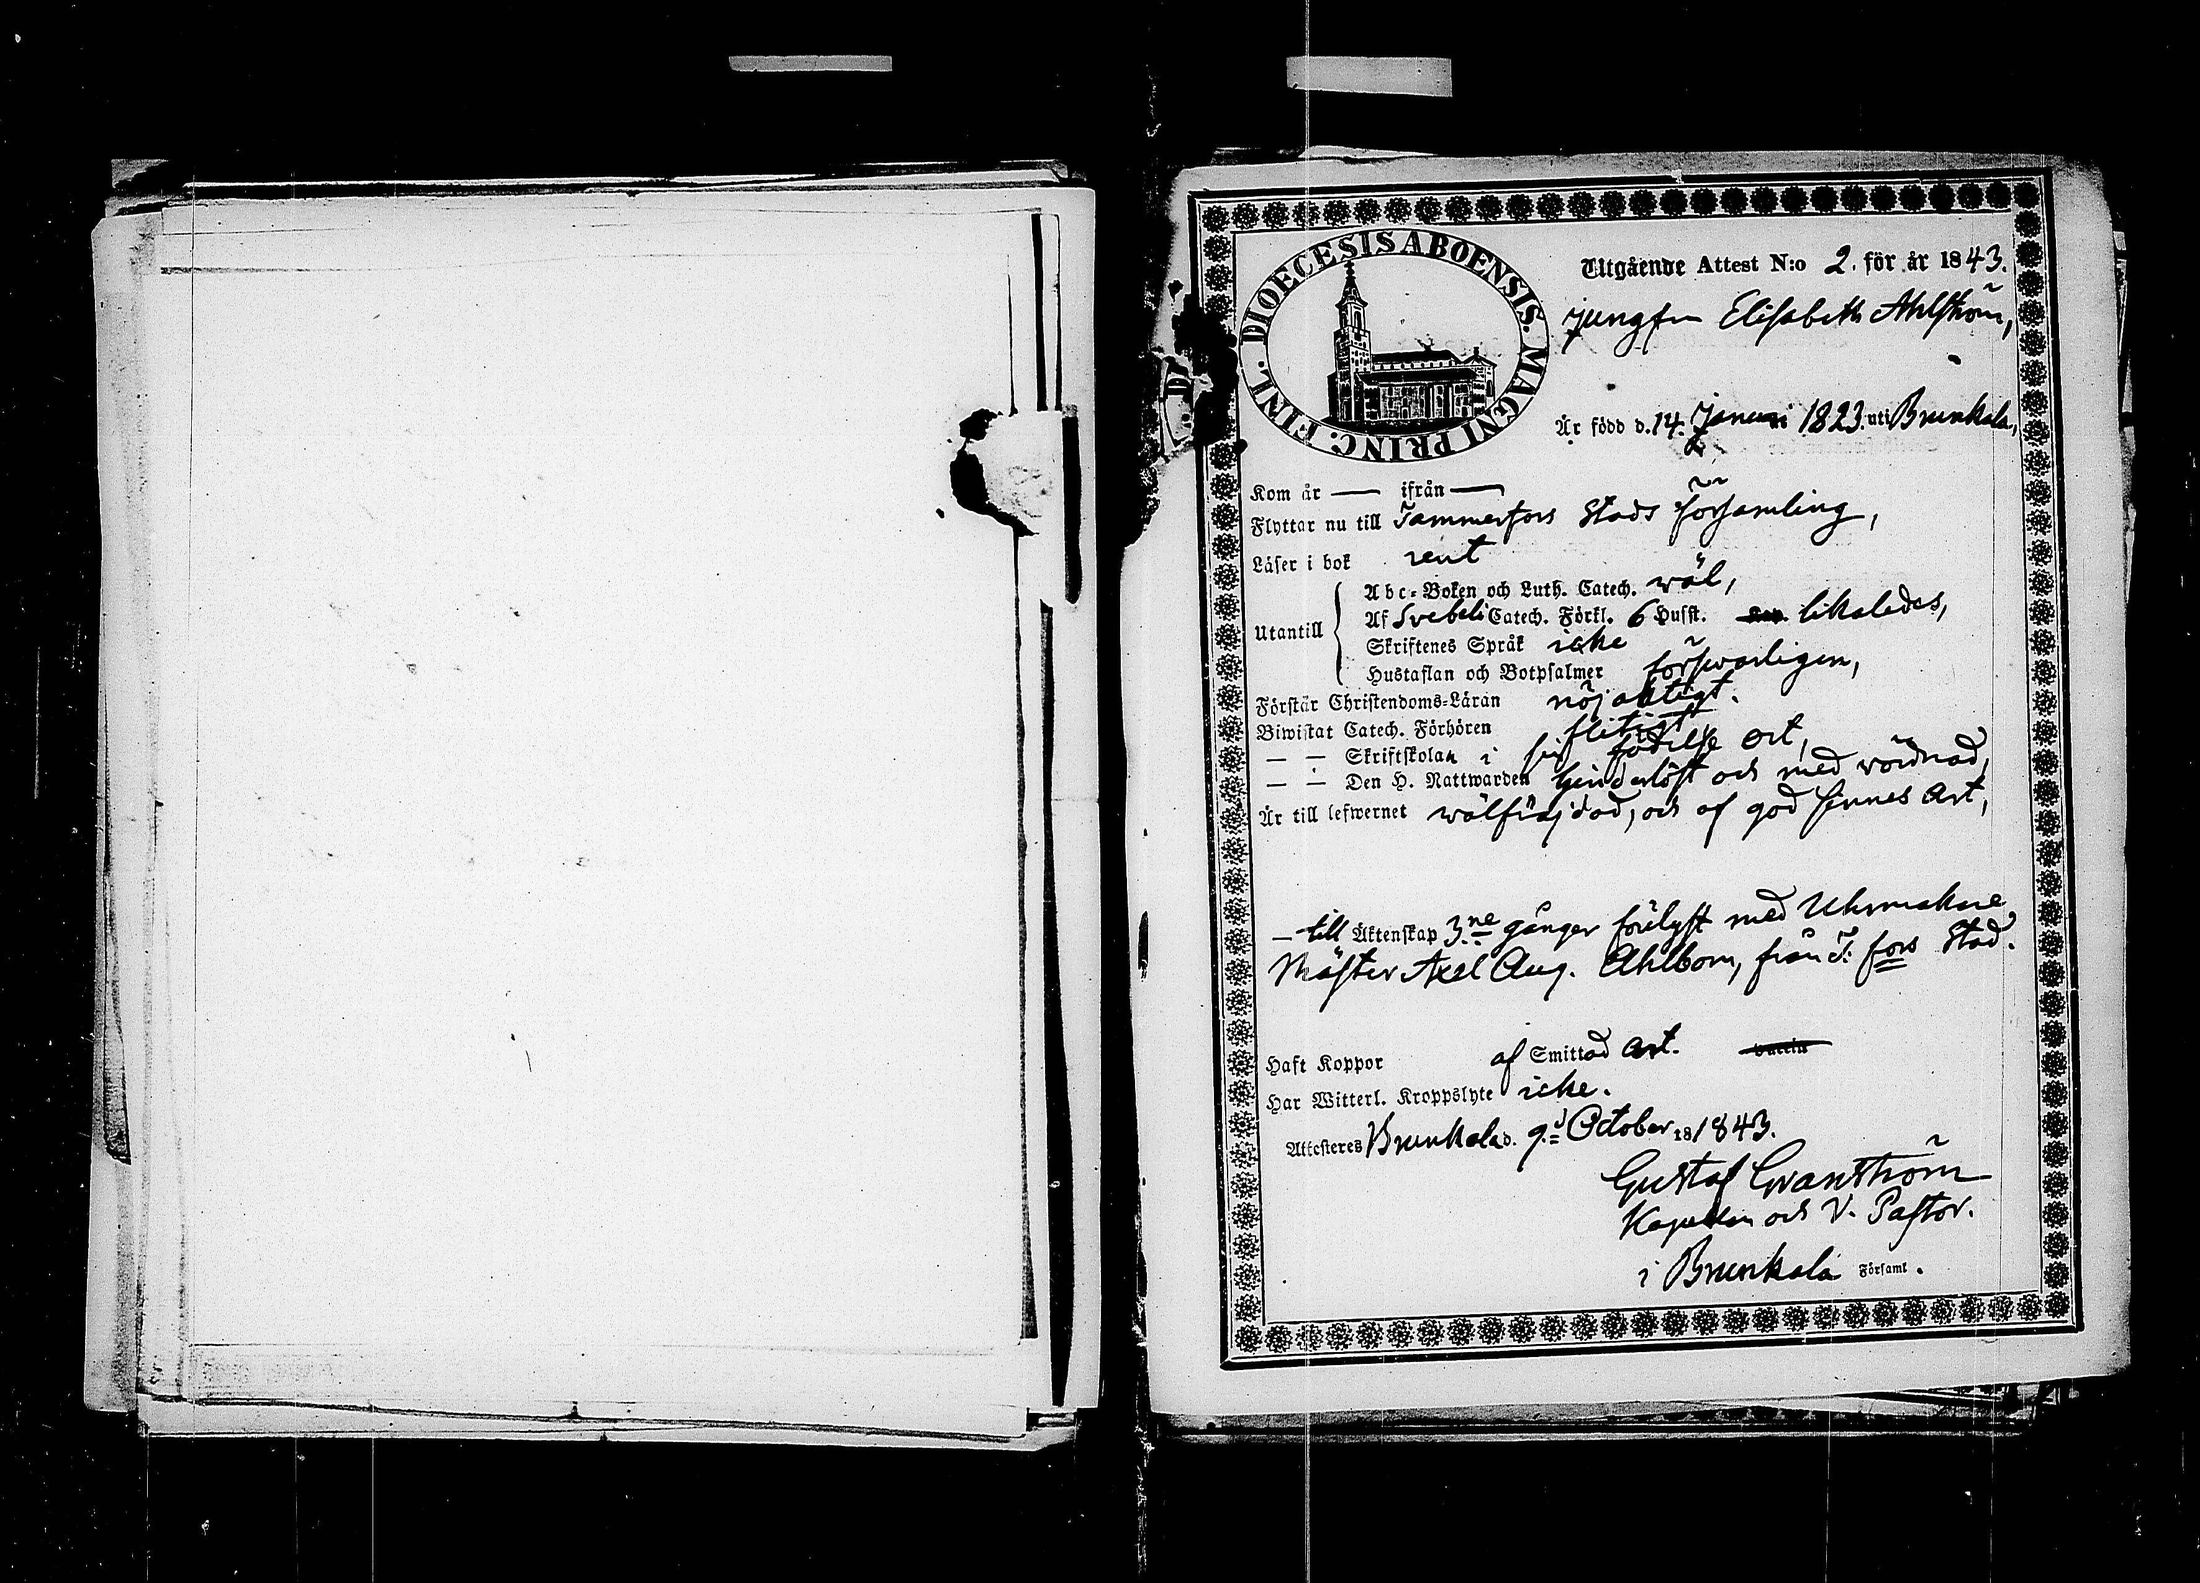 DIOECESIS ABOENSIS. MAGNI PRINC. FINL.
Utgående Attest N:o 2. för år 1843.
Jungfru Elisabeth Ahlström,
Är född d. 14. Januari 1823. uti Brunkala,
Kom år — ifrån —
Flyttar nu till Tammerfors Stads församling,
Läser i bok rent
Utantill
Abc-Boken och Luth. Catech. wäl,
Af Svebeli Catech. Förkl. 6 Husst. likaledes,
Skriftenes Språk icke
Hustaflan och Botpsalmer försvarligen,
Förstår Christendoms-Läran nöjaktigt.
Biwistat Catech. Förhören flitigt
— — Skriftskolan i sin födelse ort,
— — Den H. Nattwarden hinderlöst och med vördnad,
Är till lefwernet wälfräjdad, och af god sinnes art,
— till Äktenskap 3.ne gånger förelyst med Uhrmakare
Mäster Axel Aug. Ahlbom, från T:fors Stad.
Haft Koppor af Smittad art.
Har Witterl. Kroppslyte icke.
Attesteres Brunkala d. 9.d October 18 1843.
Gustaf Granström
Kapellan och V. Pastor.
i Brunkala Församl.